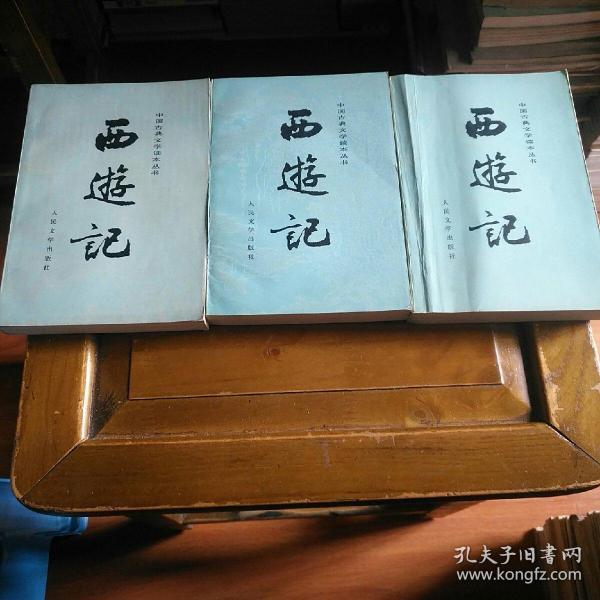 中国古典文学读本丛书
西遊記
人民文学出版社
中国古典文学读本丛书
西遊記
人民文学出版社
中国古典文学读本丛书
西遊記
人民文学出版社
孔夫子旧书网
www.kongfz.com